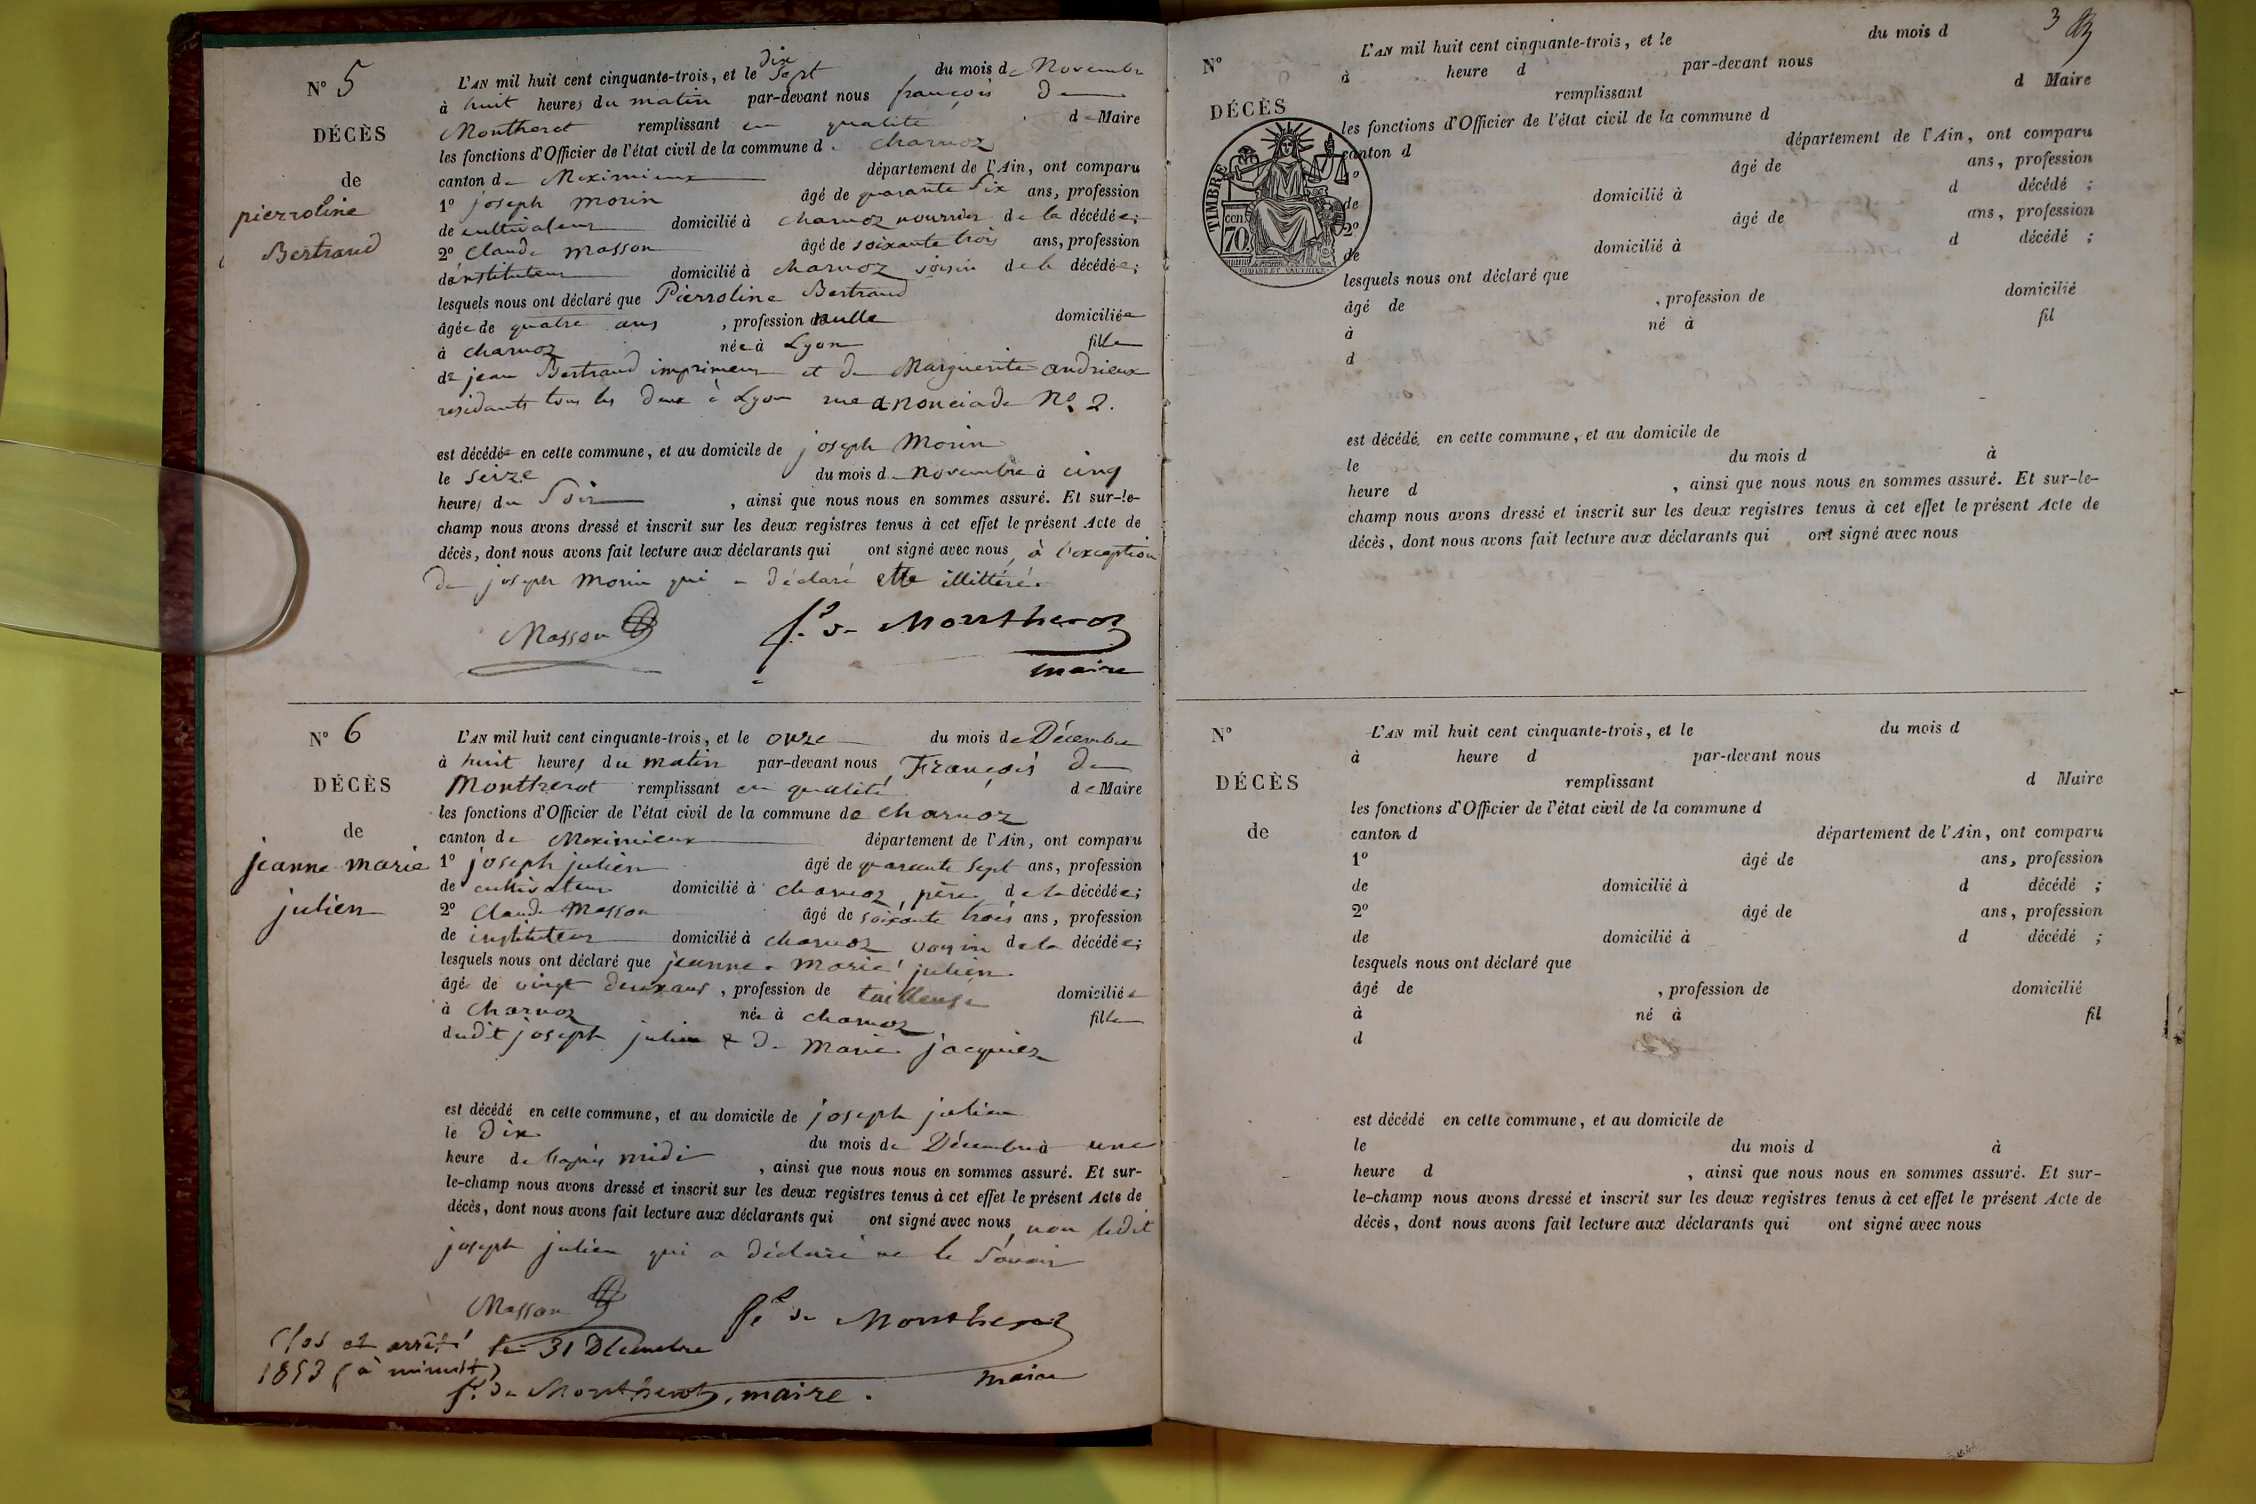 N° 5
DÉCÈS
de
pierroline
Bertrand
L'AN mil huit cent cinquante-trois, et le dix sept du mois de Novembre
à huit heures du matin par-devant nous françois De
Montherot remplissant en qualité de Maire
les fonctions d'Officier de l'état civil de la commune de charnoz
canton de Meximieux département de l'Ain, ont comparu
1° joseph morin âgé de quarante Six ans, profession
de cultivateur domicilié à charnoz nourricier de la décédée;
2° Claude Masson âgé de soixante trois ans, profession
d'instituteur domicilié à charnoz voisin de la décédée;
lesquels nous ont déclaré que Pierroline Bertrand
âgée de quatre ans, profession de nulle domiciliée
à charnoz née à Lyon fille
de jean Bertrand imprimeur et de Marguerite andrieux
residants tous les deux à Lyon rue anonciade N° 2.
est décédée en cette commune, et au domicile de joseph Morin
le seize du mois de novembre à cinq
heures du Soir, ainsi que nous nous en sommes assuré. Et sur-le-
champ nous avons dressé et inscrit sur les deux registres tenus à cet effet le présent Acte de
décès, dont nous avons fait lecture aux déclarants qui ont signé avec nous, à l'exception
de joseph Morin qui a déclaré etre illittéré.
Masson fs. de Montherot
maire
N° 6
DÉCÈS
de
jeanne marie
julien
L'AN mil huit cent cinquante-trois, et le onze du mois de Décembre
à huit heures du matin par-devant nous François De
Montherot remplissant en qualité de Maire
les fonctions d'Officier de l'état civil de la commune de charnoz
canton de Meximieux département de l'Ain, ont comparu
1° joseph julien âgé de quarante Sept ans, profession
de cultivateur domicilié à charnoz, père de la décédée;
2° Claude Masson âgé de soixante trois ans, profession
de instituteur domicilié à charnoz voisin de la décédée;
lesquels nous ont déclaré que jeanne marie julien
âgé de vingt deux ans, profession de tailleuse domiciliée
à Charnoz née à charnoz fille
dudit joseph julien & de Marie jacquier
est décédé en cette commune, et au domicile de joseph julien
le Dix du mois de Décembre à une
heure de l'après midi, ainsi que nous nous en sommes assuré. Et sur-
le-champ nous avons dressé et inscrit sur les deux registres tenus à cet effet le présent Acte de
décès, dont nous avons fait lecture aux déclarants qui ont signé avec nous, non ledit
joseph julien qui a déclaré ne le Savoir
Masson fs. de Montherot
maire
Clos et arrêté le 31 Décembre
1853 (à minuit)
fs. de Montherot, maire.
3
N°
DÉCÈS
TIMBRE
cen.
70.
L'AN mil huit cent cinquante-trois, et le du mois d
à heure d par-devant nous
remplissant d Maire
les fonctions d'Officier de l'état civil de la commune d
canton d département de l'Ain, ont comparu
1° âgé de ans, profession
de domicilié à d décédé ;
2° âgé de ans, profession
de domicilié à d décédé ;
lesquels nous ont déclaré que
âgé de , profession de domicilié
à né à fil
d
est décédé en cette commune, et au domicile de
le du mois d à
heure d , ainsi que nous nous en sommes assuré. Et sur-le-
champ nous avons dressé et inscrit sur les deux registres tenus à cet effet le présent Acte de
décès, dont nous avons fait lecture aux déclarants qui ont signé avec nous
N°
DÉCÈS
de
L'AN mil huit cent cinquante-trois, et le du mois d
à heure d par-devant nous
remplissant d Maire
les fonctions d'Officier de l'état civil de la commune d
canton d département de l'Ain, ont comparu
1° âgé de ans, profession
de domicilié à d décédé ;
2° âgé de ans, profession
de domicilié à d décédé ;
lesquels nous ont déclaré que
âgé de , profession de domicilié
à né à fil
d
est décédé en cette commune, et au domicile de
le du mois d à
heure d , ainsi que nous nous en sommes assuré. Et sur-
le-champ nous avons dressé et inscrit sur les deux registres tenus à cet effet le présent Acte de
décès, dont nous avons fait lecture aux déclarants qui ont signé avec nous